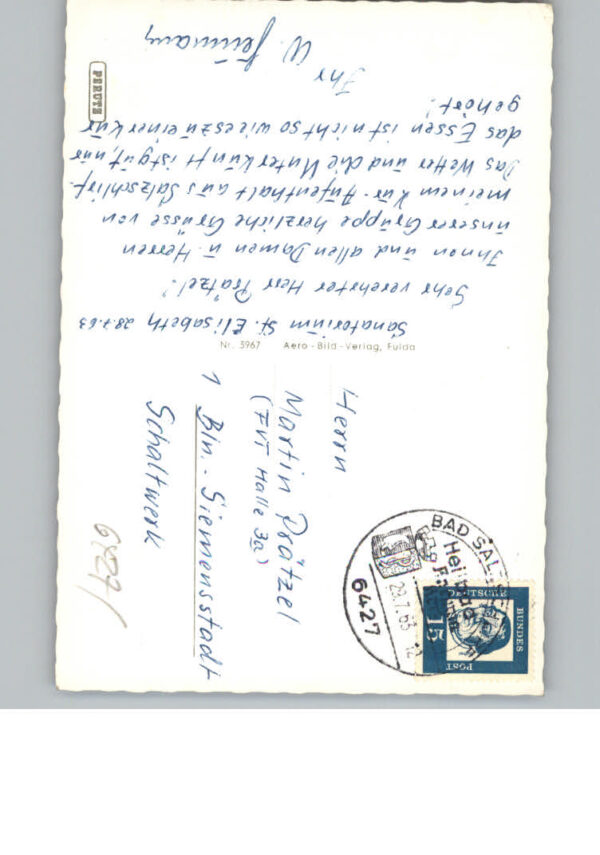 Nr. 3967 Aero-Bild-Verlag, Fulda
Sanatorium St. Elisabeth 28.7.63
Sehr verehrter Herr Prätzel!
Ihnen und allen Damen u. Herren
unserer Gruppe herzliche Grüsse von
meinem Kur-Aufenthalt aus Salzschlirf.
Das Wetter und die Unterkunft ist gut, nur
das Essen ist nicht so wie es zu einer Kur
gehört!
Ihr
W.
PERUTZ
Herrn
Martin Prätzel
(FVT Halle 3a)
1 Bln.-Siemensstadt
Schaltwerk
6427
BAD
6427
29.7.63
DEUTSCHE
BUNDESPOST
15